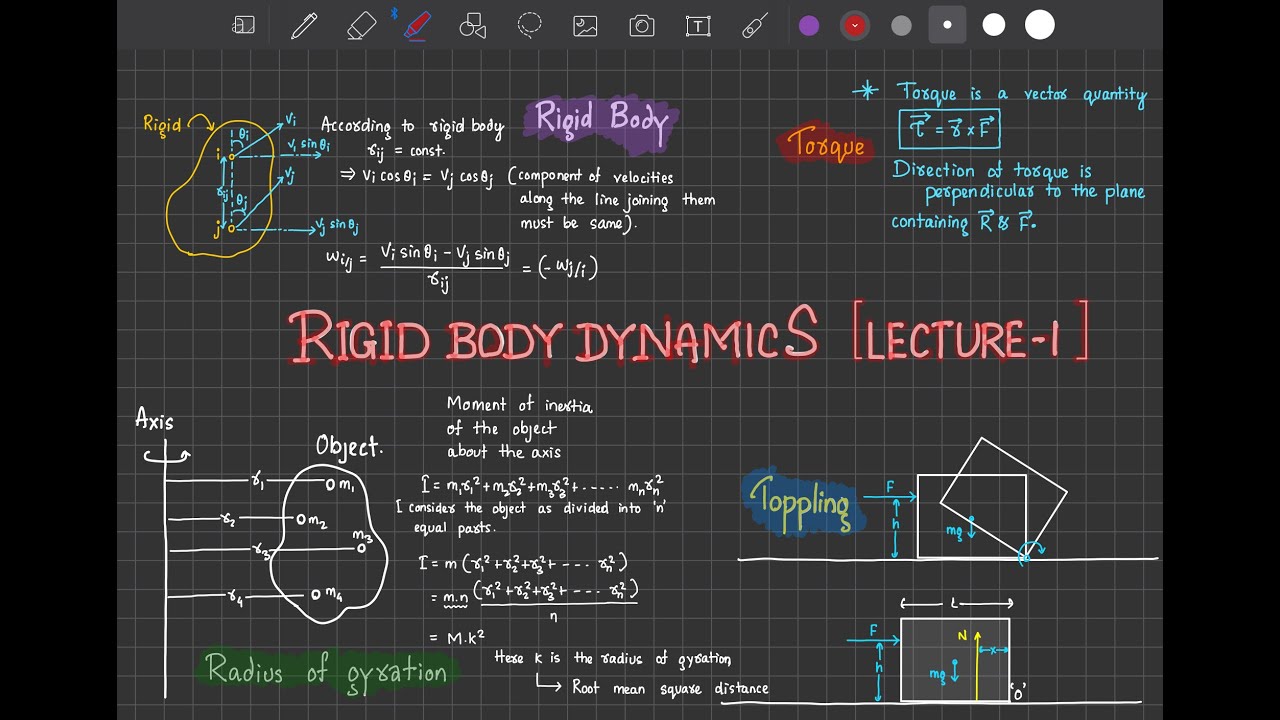 T
Rigid
i
j
r_ij
θi
θj
Vi
Vi sin θi
Vj
Vj sin θj
According to rigid body
r_ij = const.
⇒ Vi cos θi = Vj cos θj (component of velocities
along the line joining them
must be same).
ω_i/j = (Vi sin θi − Vj sin θj) / r_ij = (−ω_j/i)
Rigid Body
Torque
* Torque is a vector quantity
τ⃗ = r⃗ × F⃗
Direction of torque is
perpendicular to the plane
containing R⃗ & F⃗.
RIGID BODY DYNAMICS [LECTURE-1]
Axis
Object.
r₁ m₁
r₂ m₂
r₃ m₃
r₄ m₄
Radius of gyration
Moment of inertia
of the object
about the axis
I = m₁r₁² + m₂r₂² + m₃r₃² + ..... mₙrₙ²
I consider the object as divided into 'n'
equal parts.
I = m (r₁² + r₂² + r₃² + --.. rₙ²)
= m.n (r₁² + r₂² + r₃² + -... rₙ²) / n
= M.k²
Here k is the radius of gyration
↳ Root mean square distance
Toppling
F
h
mg
L
F
h
N
x
mg
'O'